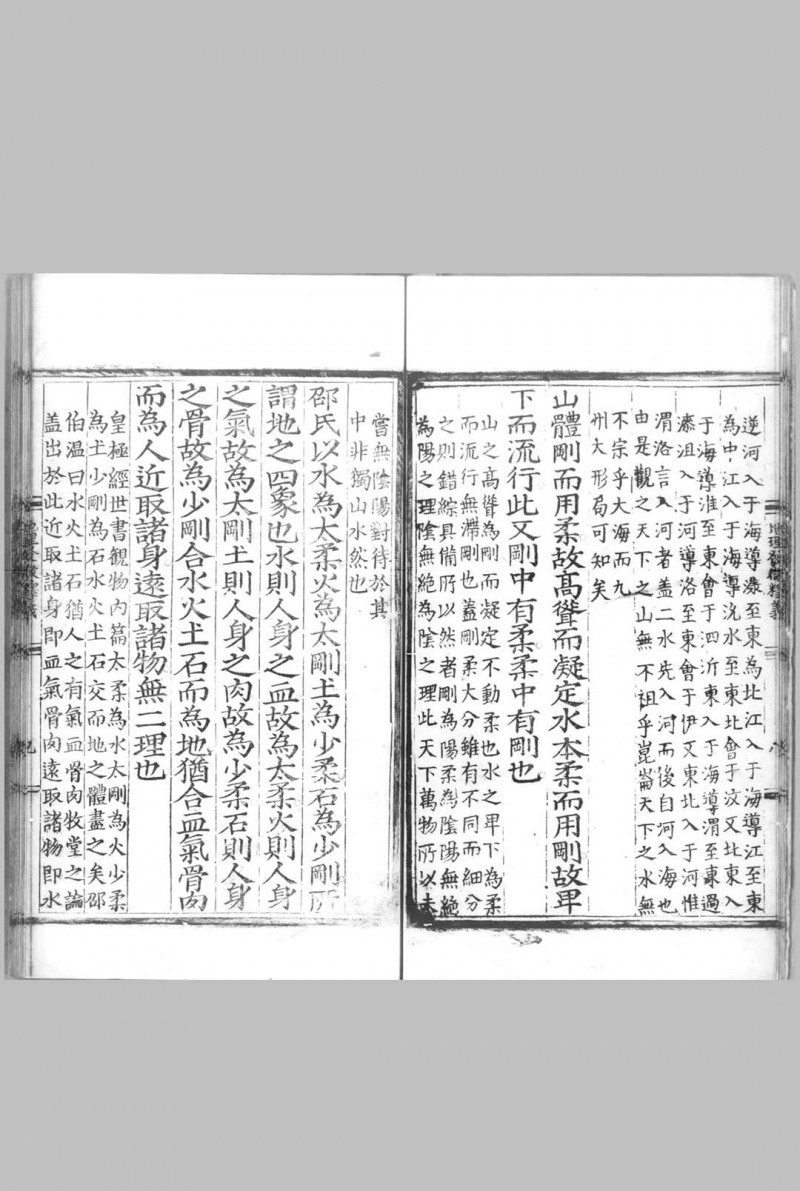 逆河入于海導漾至東為北江入于海導江至東
為中江入于海導沇水至東北會于汶又北東入
于海導淮至東會于泗沂東入于海導渭至東過
漆沮入于河導洛至東會于伊又東北入于河惟
渭洛言入河者蓋二水先入河而後自河入海也
由是觀之天下之山無不祖乎崑崙天下之水無
不宗乎大海而九
州大形局可知矣
山體剛而用柔故髙聳而凝定水本柔而用剛故卑
下而流行此又剛中有柔柔中有剛也
山之髙聳為剛而凝定不動柔也水之卑下為柔
而流行無滯剛也蓋剛柔大分雖有不同而細分
之則錯綜具備所以然者剛為陽柔為陰陽無絶
為陽之理陰無絶為陰之理此天下萬物所以未
嘗無陰陽對待於其
中非獨山水然也
邵氏以水為太柔火為太剛土為少柔石為少剛所
謂地之四象也水則人身之血故為太柔火則人身
之氣故為太剛土則人身之肉故為少柔石則人身
之骨故為少剛合水火土石而為地猶合血氣骨肉
而為人近取諸身遠取諸物無二理也
皇極經世書觀物内篇太柔為水太剛為火少柔
為土少剛為石水火土石交而地之體盡之矣邵
伯温曰水火土石猶人之有氣血骨肉牧堂之論
蓋出於此近取諸身即血氣骨肉遠取諸物即水